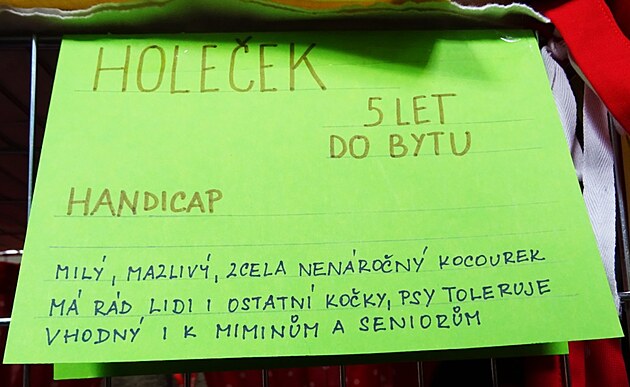 HOLEČEK
5 LET
DO BYTU
HANDICAP
MILÝ, MAZLIVÝ, ZCELA NENÁROČNÝ KOCOUREK
MÁ RÁD LIDI I OSTATNÍ KOČKY, PSY TOLERUJE
VHODNÝ I K MIMINŮM A SENIORŮM